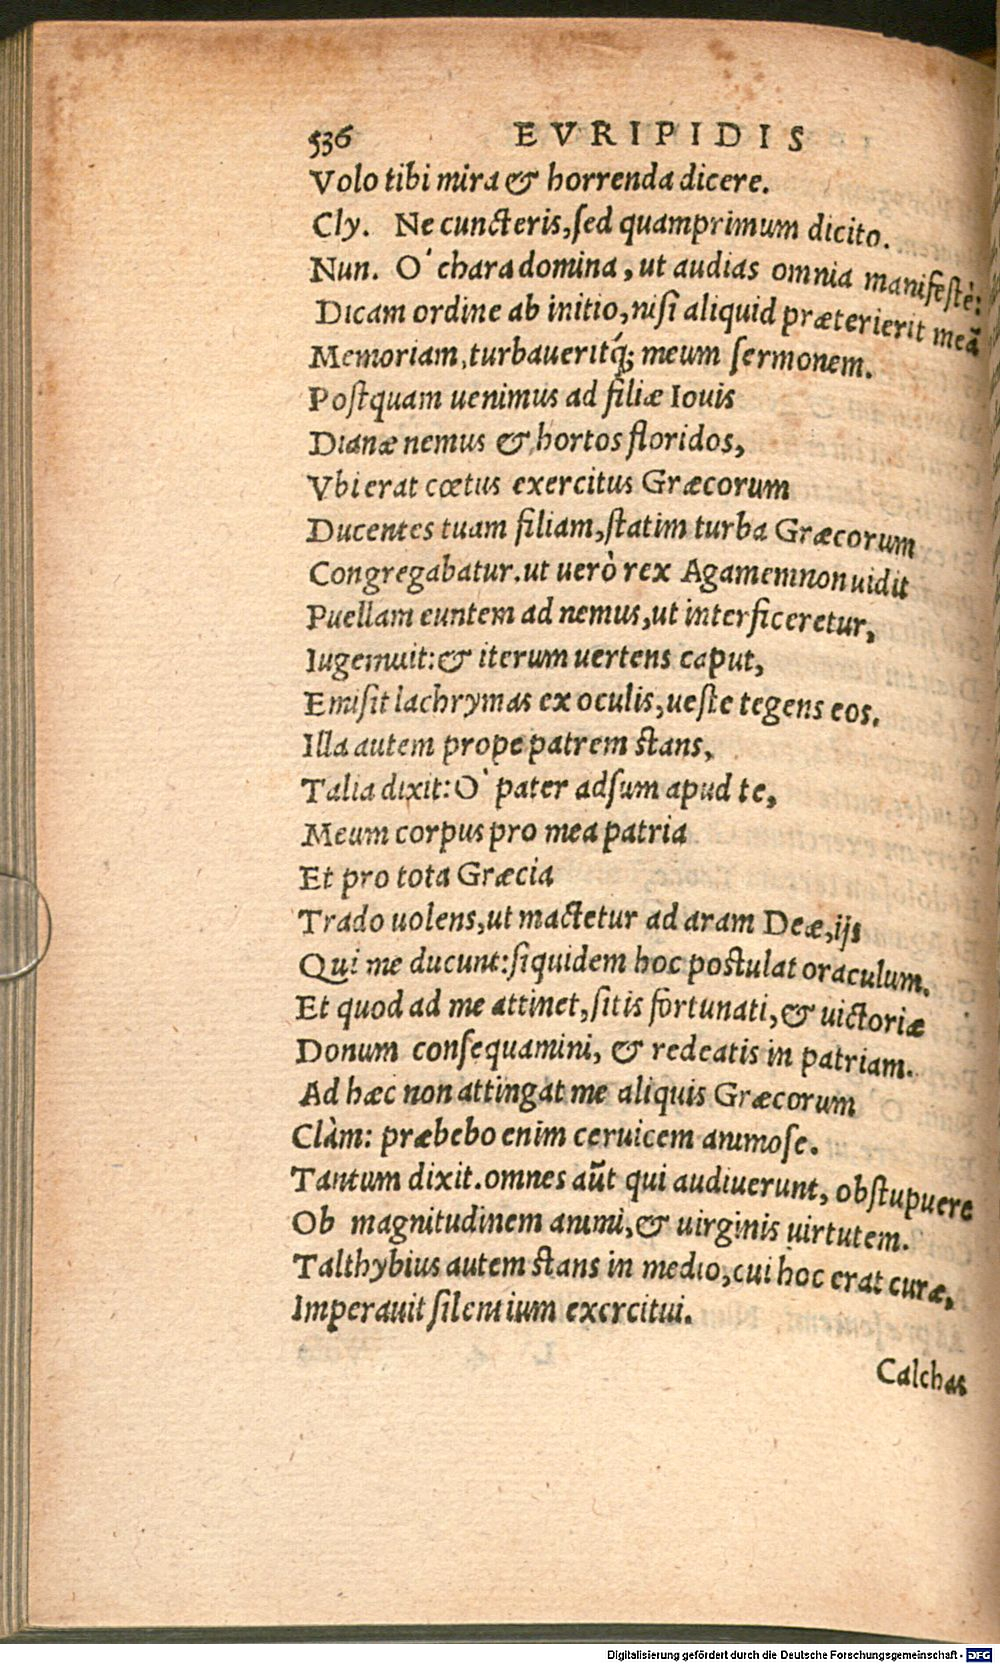 536 EVRIPIDIS
Volo tibi mira & horrenda dicere.
Cly. Ne cuncteris, sed quamprimum dicito.
Nun. O' chara domina, ut audias omnia manifestè:
Dicam ordine ab initio, nisi aliquid præterierit meã
Memoriam, turbaueritq́; meum sermonem.
Postquam uenimus ad filiæ Iouis
Dianæ nemus & hortos floridos,
Vbi erat cœtus exercitus Græcorum
Ducentes tuam filiam, statim turba Græcorum
Congregabatur. ut uerò rex Agamemnon uidit
Puellam euntem ad nemus, ut interficeretur,
Iugemuit: & iterum uertens caput,
Emisit lachrymas ex oculis, ueste tegens eos.
Illa autem prope patrem stans,
Talia dixit: O' pater adsum apud te,
Meum corpus pro mea patria
Et pro tota Græcia
Trado uolens, ut mactetur ad aram Deæ, ijs
Qui me ducunt: siquidem hoc postulat oraculum.
Et quod ad me attinet, sitis fortunati, & uictoriæ
Donum consequamini, & redeatis in patriam.
Ad hæc non attingat me aliquis Græcorum
Clàm: præbebo enim ceruicem animose.
Tantum dixit. omnes aũt qui audiuerunt, obstupuere
Ob magnitudinem animi, & uirginis uirtutem.
Talthybius autem stans in medio, cui hoc erat curæ,
Imperauit silentium exercitui.
Calchas
Digitalisierung gefördert durch die Deutsche Forschungsgemeinschaft - DFG